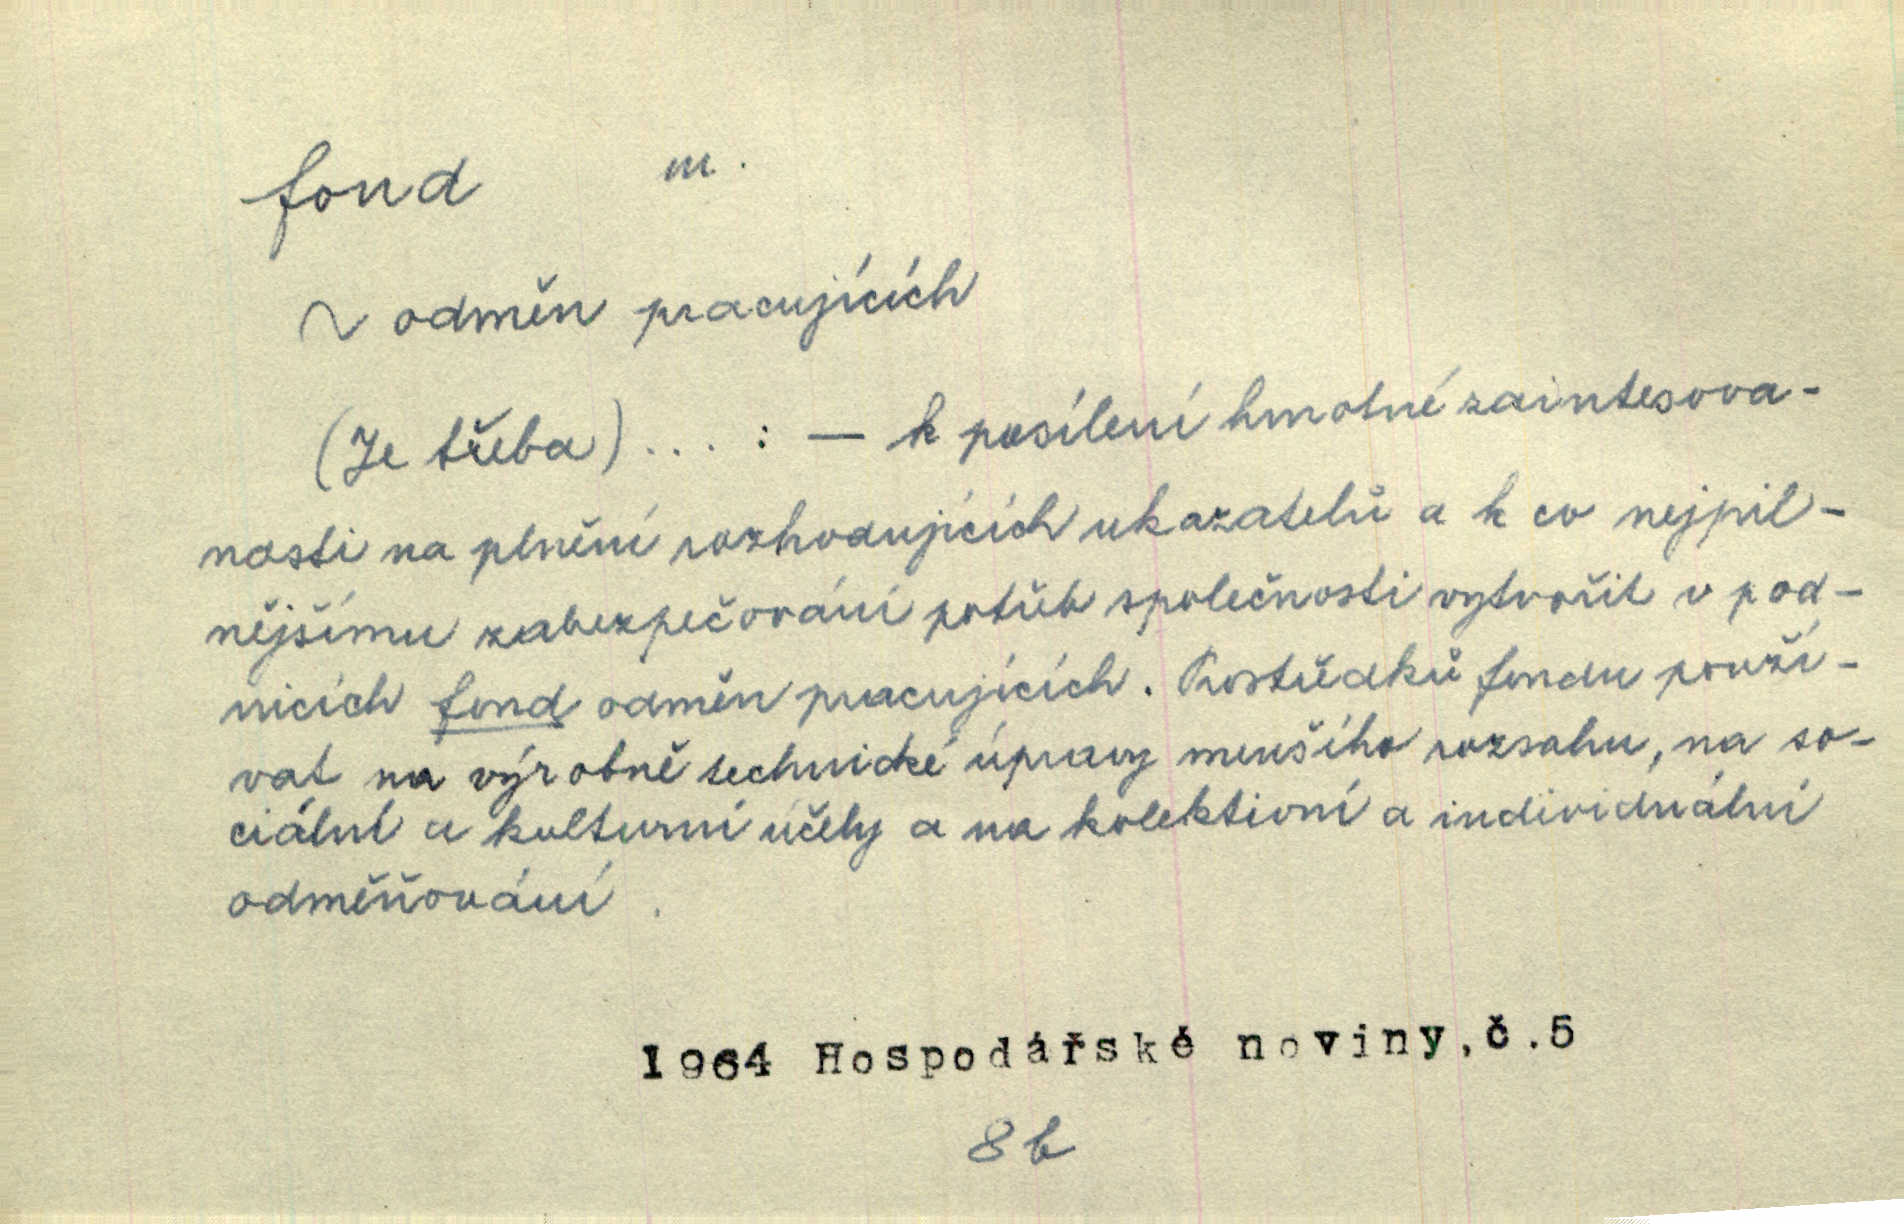 fond m.
~ odměn pracujících
(Je třeba) ... : — k posílení hmotné zaintesova-
nosti na plnění rozhodujících ukazatelů a k co nejpil-
nějšímu zabezpečování potřeb společnosti vytvořit v pod-
nicích fond odměn pracujících. Prostředků fondu použí-
vat na výrobně technické úpravy menšího rozsahu, na so-
ciální a kulturní účely a na kolektivní a individuální
odměňování.
1964 Hospodářské noviny,č.5
8b